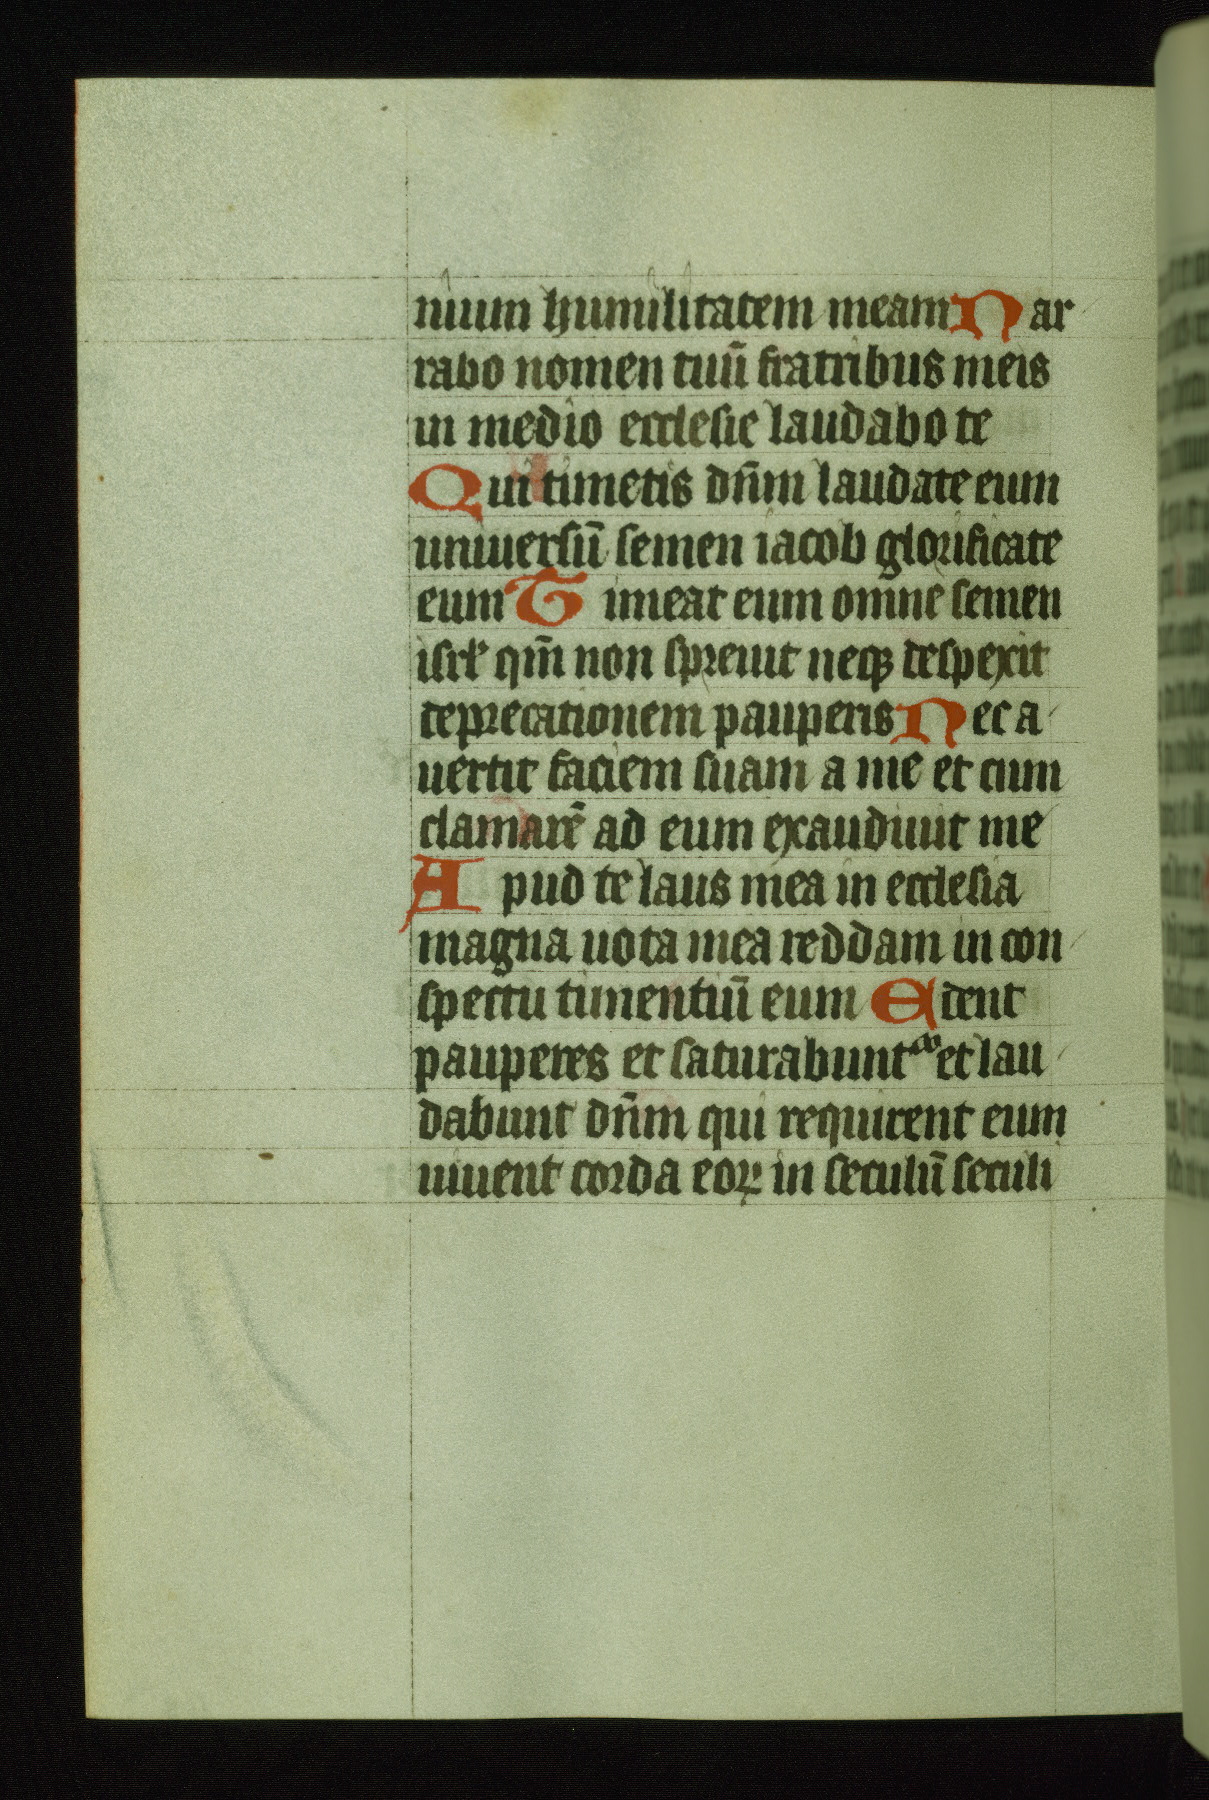 nium humilitatem meam Nar
rabo nomen tuū fratribus meis
in medio ecclesie laudabo te
Qui timetis dn̄m laudate eum
uniuersū semen iacob glorificate
eum Timeat eum omne semen
isrl' qm̄ non spreuit neqꝫ despexit
deprecationem pauperis Nec a
uertit faciem suam a me et cum
clamarē ad eum exaudiuit me
Apud te laus mea in ecclesia
magna uota mea reddam in con
spectu timentiū eum Edent
pauperes et saturabunt᷑ et lau
dabunt dn̄m qui requirent eum
uiuent corda eoꝝ in seculū seculi